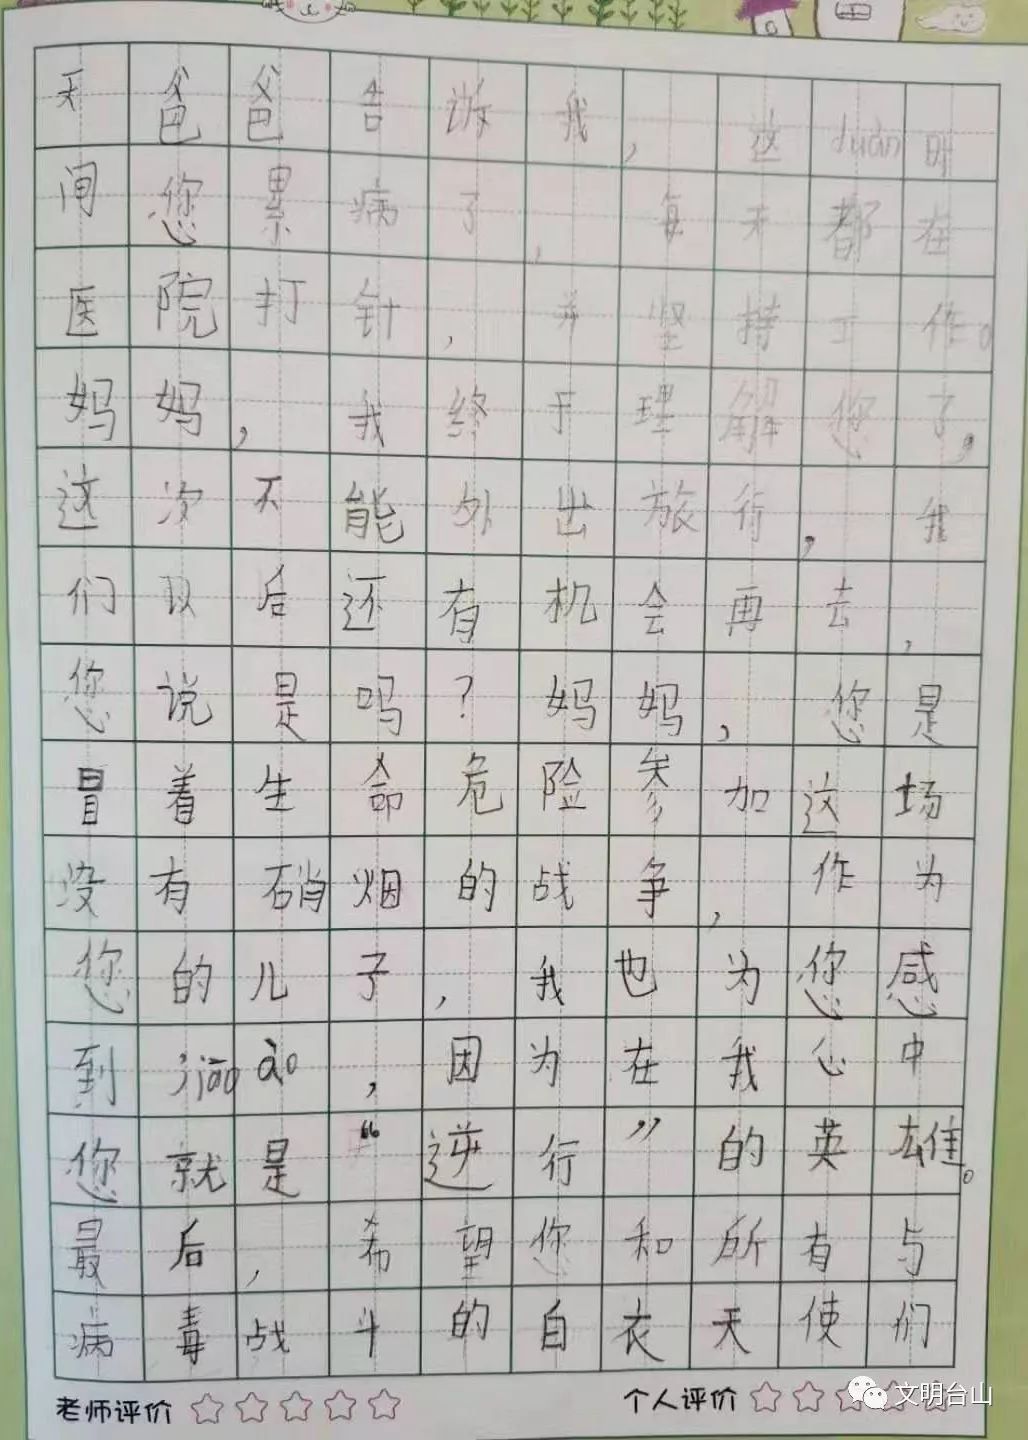 天爸爸告诉我，这duàn时
间您累病了，每天都在
医院打针，并坚持工作。
妈妈，我终于理解您了，
这次不能外出旅行，我
们以后还有机会再去，
您说是吗？妈妈，您是
冒着生命危险参加这场
没有硝烟的战争，作为
您的儿子，我也为您感
到jiāo ào，因为在我心中
您就是“逆行”的英雄。
最后，希望您和所有与
病毒战斗的自衣天使们
老师评价 个人评价
文明台山